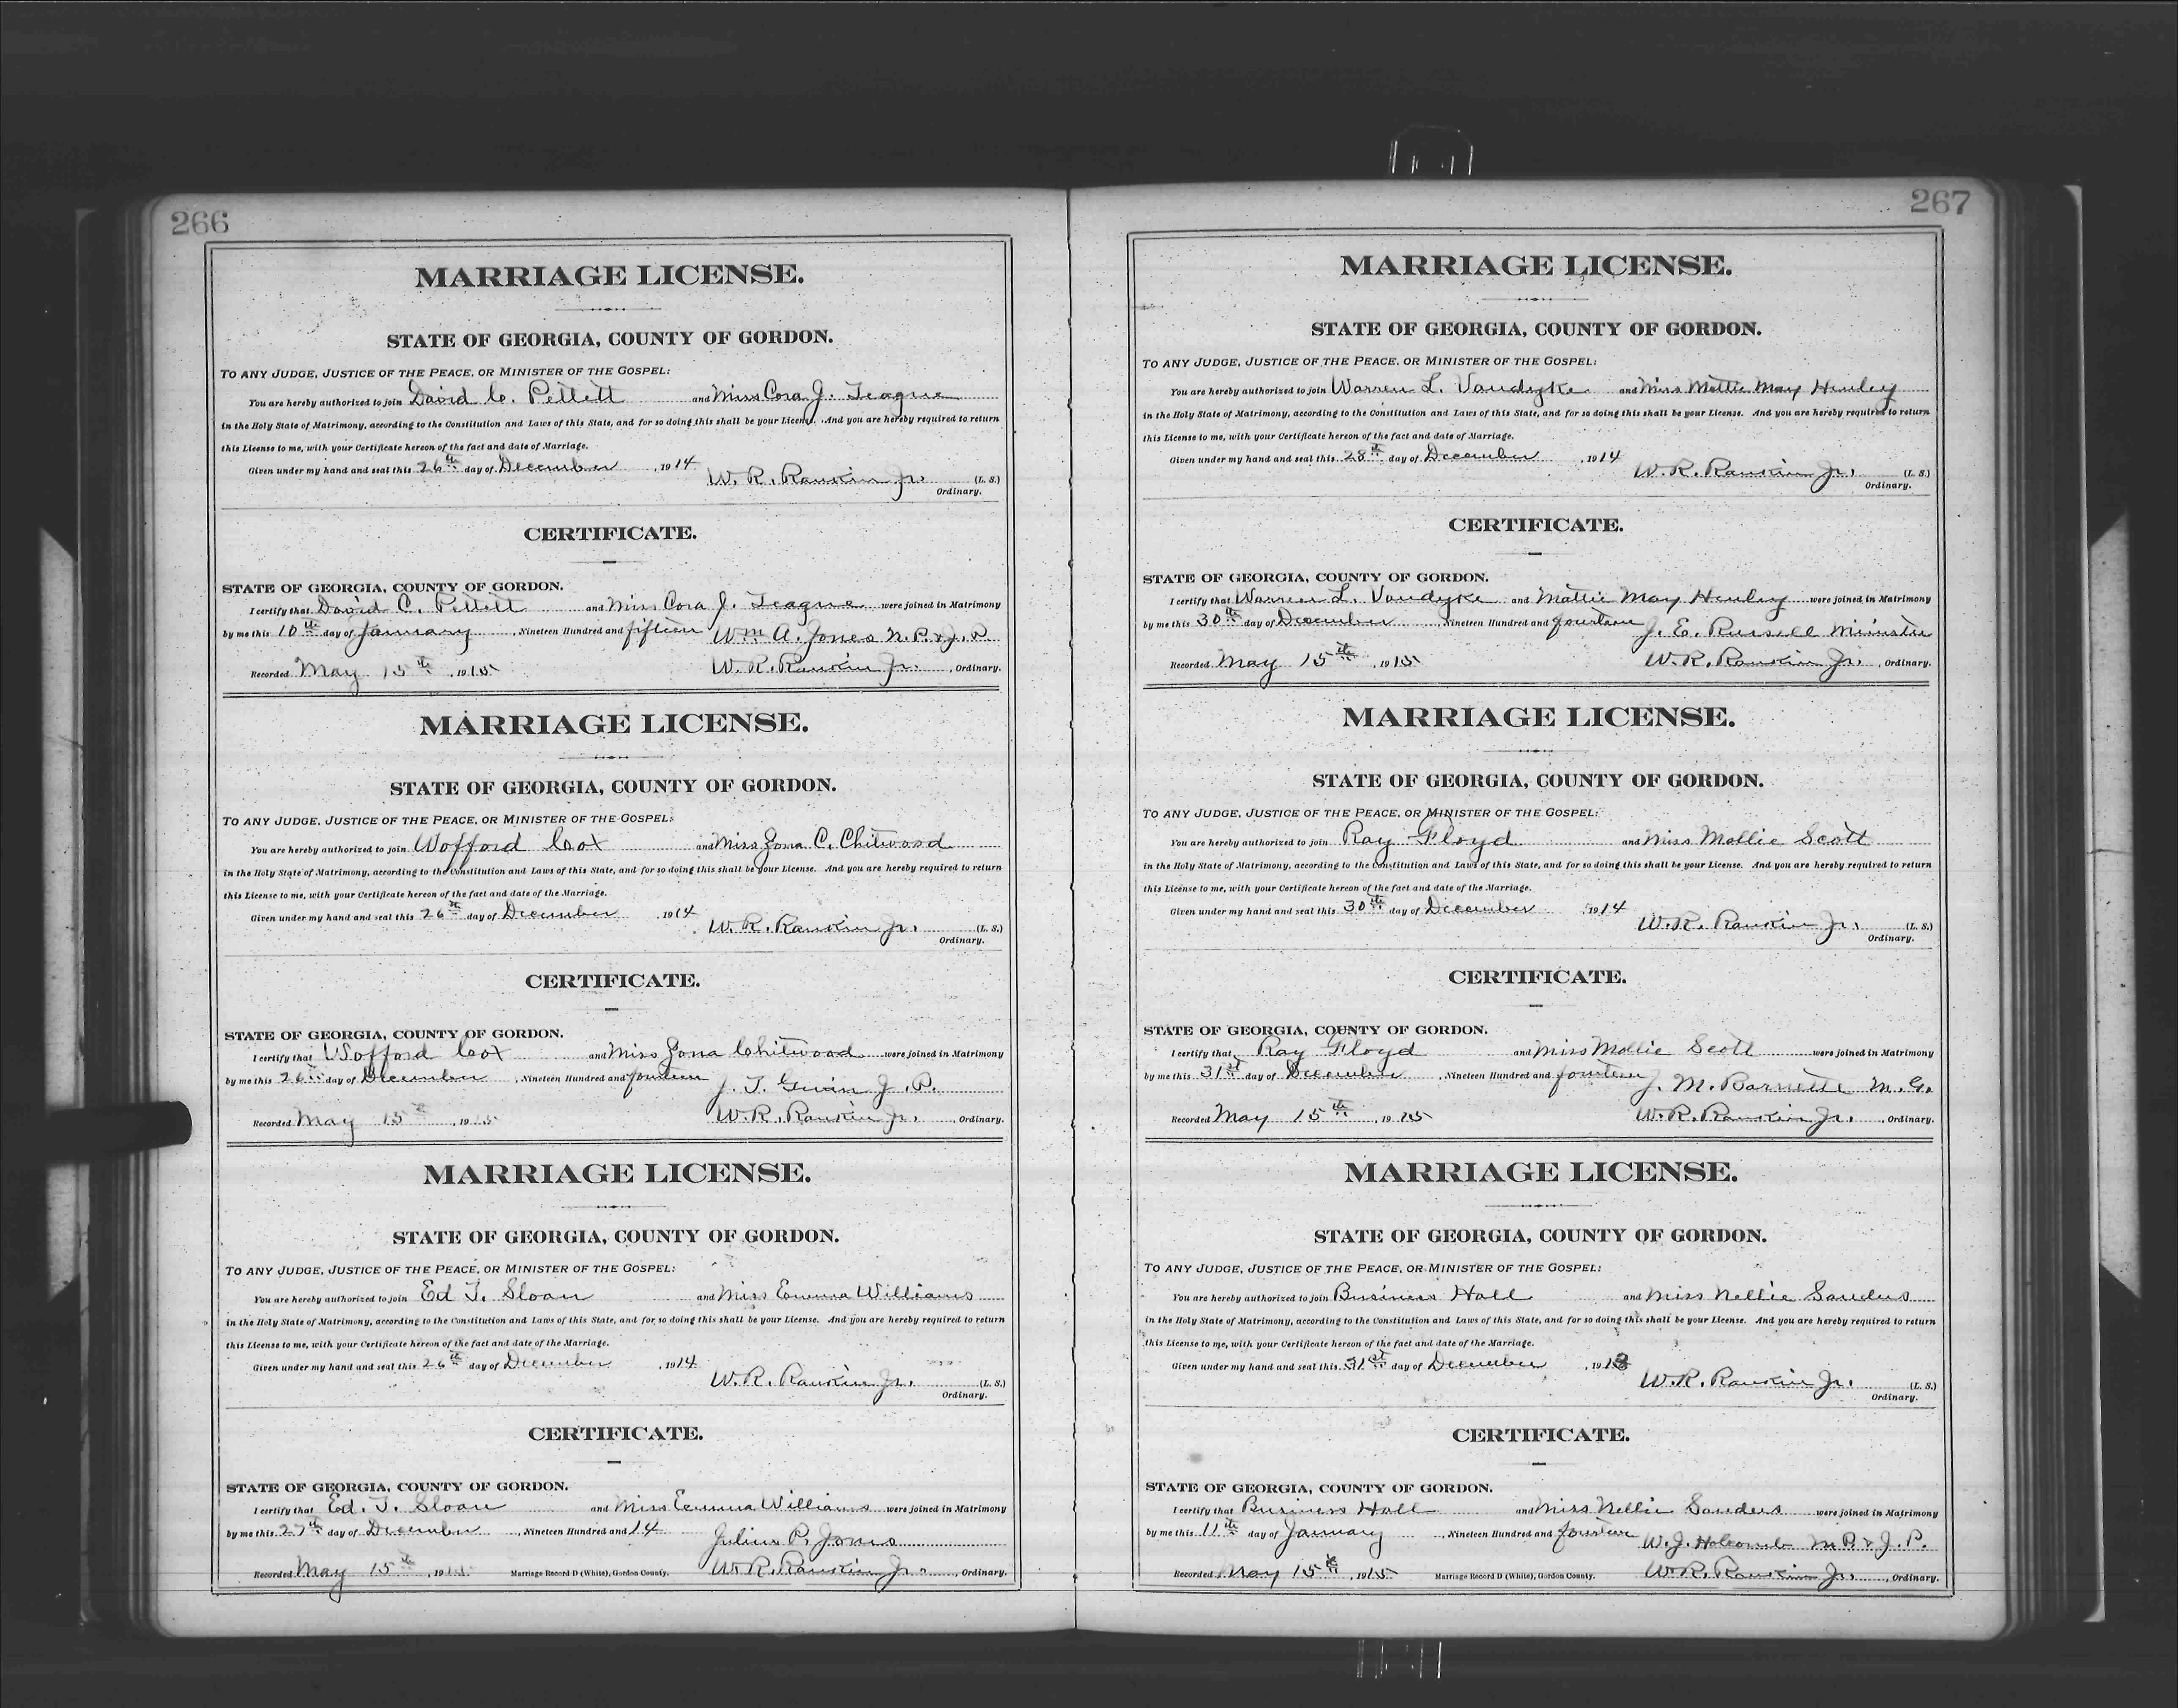 266
MARRIAGE LICENSE.
STATE OF GEORGIA, COUNTY OF GORDON.
TO ANY JUDGE, JUSTICE OF THE PEACE, OR MINISTER OF THE GOSPEL:
You are hereby authorized to join David C. Pettett and Miss Cora J. Teague
in the Holy State of Matrimony, according to the Constitution and Laws of this State, and for so doing this shall be your License. And you are hereby required to return
this License to me, with your Certificate hereon of the fact and date of Marriage.
Given under my hand and seal this 26th day of December, 1914
W. R. Rankin Jr. (L. S.)
Ordinary.
CERTIFICATE.
STATE OF GEORGIA, COUNTY OF GORDON.
I certify that David C. Pettett and Miss Cora J. Teague were joined in Matrimony
by me this 10th day of January, Nineteen Hundred and fifteen Wm A. Jones N. P. & J. P.
Recorded May 15th, 1915 W. R. Rankin Jr., Ordinary.
MARRIAGE LICENSE.
STATE OF GEORGIA, COUNTY OF GORDON.
TO ANY JUDGE, JUSTICE OF THE PEACE, OR MINISTER OF THE GOSPEL:
You are hereby authorized to join Wofford Cox and Miss Zona C. Chitwood
in the Holy State of Matrimony, according to the Constitution and Laws of this State, and for so doing this shall be your License. And you are hereby required to return
this License to me, with your Certificate hereon of the fact and date of the Marriage.
Given under my hand and seal this 26th day of December, 1914
W. R. Rankin Jr. (L. S.)
Ordinary.
CERTIFICATE.
STATE OF GEORGIA, COUNTY OF GORDON.
I certify that Wofford Cox and Miss Zona Chitwood were joined in Matrimony
by me this 26th day of December, Nineteen Hundred and fourteen J. T. Gwin J. P.
Recorded May 15th, 1915 W. R. Rankin Jr., Ordinary.
MARRIAGE LICENSE.
STATE OF GEORGIA, COUNTY OF GORDON.
TO ANY JUDGE, JUSTICE OF THE PEACE, OR MINISTER OF THE GOSPEL:
You are hereby authorized to join Ed T. Sloan and Miss Emma Williams
in the Holy State of Matrimony, according to the Constitution and Laws of this State, and for so doing this shall be your License. And you are hereby required to return
this License to me, with your Certificate hereon of the fact and date of the Marriage.
Given under my hand and seal this 26th day of December, 1914
W. R. Rankin Jr. (L. S.)
Ordinary.
CERTIFICATE.
STATE OF GEORGIA, COUNTY OF GORDON.
I certify that Ed. T. Sloan and Miss Emma Williams were joined in Matrimony
by me this 27th day of December, Nineteen Hundred and 14 Julius P. Jones
Recorded May 15th, 191 Marriage Record D (White), Gordon County. W. R. Rankin Jr., Ordinary.
267
MARRIAGE LICENSE.
STATE OF GEORGIA, COUNTY OF GORDON.
TO ANY JUDGE, JUSTICE OF THE PEACE, OR MINISTER OF THE GOSPEL:
You are hereby authorized to join Warren L. Vandyke and Miss Mattie May Henley
in the Holy State of Matrimony, according to the Constitution and Laws of this State, and for so doing this shall be your License. And you are hereby required to return
this License to me, with your Certificate hereon of the fact and date of Marriage.
Given under my hand and seal this 28th day of December, 1914
W. R. Rankin Jr. (L. S.)
Ordinary.
CERTIFICATE.
STATE OF GEORGIA, COUNTY OF GORDON.
I certify that Warren L. Vandyke and Mattie May Henley were joined in Matrimony
by me this 30th day of December, Nineteen Hundred and fourteen J. E. Russell Minister
Recorded May 15th, 1915 W. R. Rankin Jr., Ordinary.
MARRIAGE LICENSE.
STATE OF GEORGIA, COUNTY OF GORDON.
TO ANY JUDGE, JUSTICE OF THE PEACE, OR MINISTER OF THE GOSPEL:
You are hereby authorized to join Ray Floyd and Miss Mollie Scott
in the Holy State of Matrimony, according to the Constitution and Laws of this State, and for so doing this shall be your License. And you are hereby required to return
this License to me, with your Certificate hereon of the fact and date of the Marriage.
Given under my hand and seal this 30th day of December, 1914
W. R. Rankin Jr. (L. S.)
Ordinary.
CERTIFICATE.
STATE OF GEORGIA, COUNTY OF GORDON.
I certify that Ray Floyd and Miss Mollie Scott were joined in Matrimony
by me this 31st day of December, Nineteen Hundred and fourteen J. M. Barnette M. G.
Recorded May 15th, 1915 W. R. Rankin Jr., Ordinary.
MARRIAGE LICENSE.
STATE OF GEORGIA, COUNTY OF GORDON.
TO ANY JUDGE, JUSTICE OF THE PEACE, OR MINISTER OF THE GOSPEL:
You are hereby authorized to join Business Hall and Miss Nellie Sanders
in the Holy State of Matrimony, according to the Constitution and Laws of this State, and for so doing this shall be your License. And you are hereby required to return
this License to me, with your Certificate hereon of the fact and date of the Marriage.
Given under my hand and seal this 31st day of December, 1913
W. R. Rankin Jr. (L. S.)
Ordinary.
CERTIFICATE.
STATE OF GEORGIA, COUNTY OF GORDON.
I certify that Business Hall and Miss Nellie Sanders were joined in Matrimony
by me this 11th day of January, Nineteen Hundred and fourteen W. J. Holcomb N. P. & J. P.
Recorded May 15th, 1915 Marriage Record D (White), Gordon County. W. R. Rankin Jr., Ordinary.